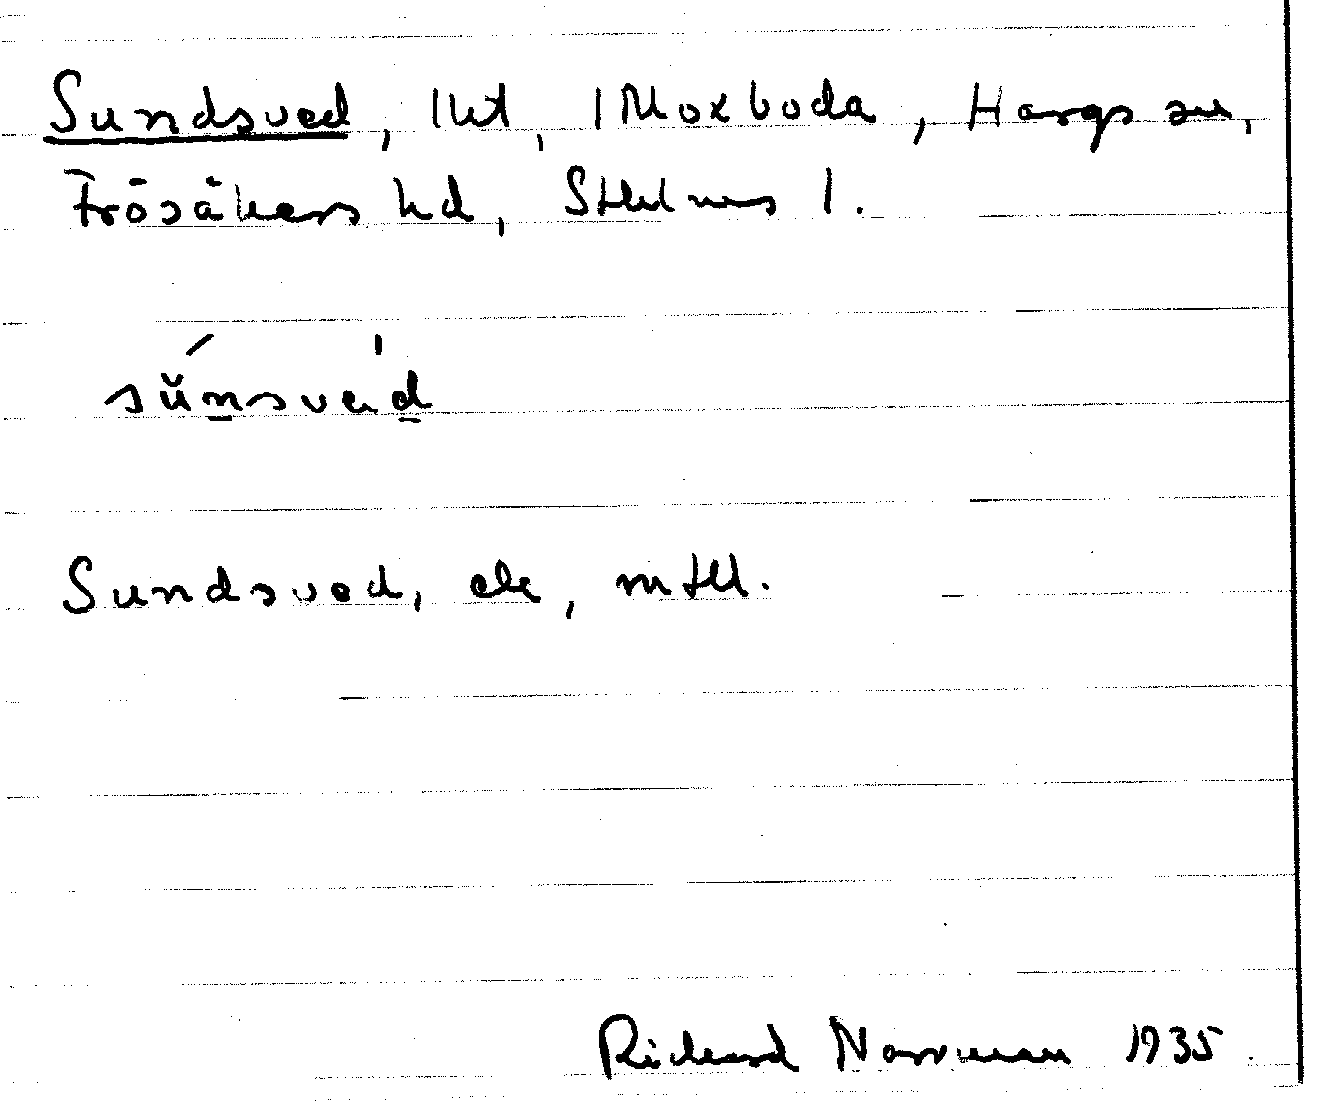 Sundsved, lht, i Moxboda, Hargs sn,
Frösåkers hd, Sthlms l.
sŭnsved
Sundsved, ek, mtll.
Richard Norrman 1935